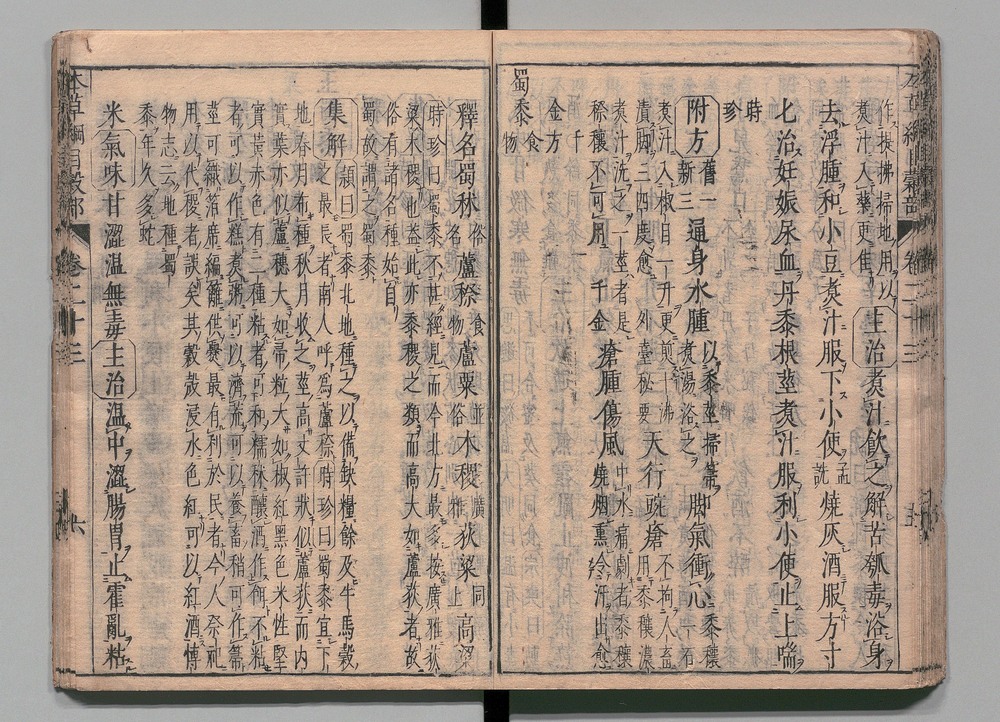 本草綱目穀部 卷二十三 五
作提拂掃地用以
煮汁入藥更佳
主治煮汁飲之解苦瓠毒浴身
去浮腫和小豆煮汁服下小便孟詵燒灰酒服方寸
匕治妊娠尿血丹黍根莖煮汁服利小便止上喘
時珍
附方舊一新三遍身水腫以黍莖掃箒煮湯浴之
脚氣衝心黍穰一石
煮汁入椒目一升更煎十沸
漬脚三四度愈外臺秘要
天行豌瘡不拘人畜用黍穰濃
煮汁洗之一莖者是
穄穰不可用千金
瘡腫傷風中水痛劇者黍穰
燒烟熏令汗出愈
千金方
蜀黍食物
釋名蜀秫俗名蘆穄食物蘆粟並俗木稷廣雅荻粱同上高粱
時珍曰蜀黍不甚經見而今北方最多按廣雅荻
粱木稷也蓋此亦黍稷之類而高大如蘆荻者故
俗有諸名種始自
蜀故謂之蜀黍
集解穎曰蜀黍北地種之以備缺糧餘及牛馬穀
之最長者南人呼為蘆穄時珍曰蜀黍宜下
地春月布種秋月收之莖高丈許狀似蘆荻而內
實葉亦似蘆穗大如帚粒大如椒紅黑色米性堅
實黃赤色有二種粘者可和糯秫釀酒作餌不粘
者可以作糕煮粥可以濟荒可以養畜稍可作箒
莖可織箔席編籬供爨最有利於民者今人祭祀
用以代稷者誤矣其穀殼浸水色紅可以紅酒博
物志云地種蜀
黍年久多蛇
米氣味甘澀溫無毒主治溫中澀腸胃止霍亂粘
本草綱目穀部 卷二十三 六